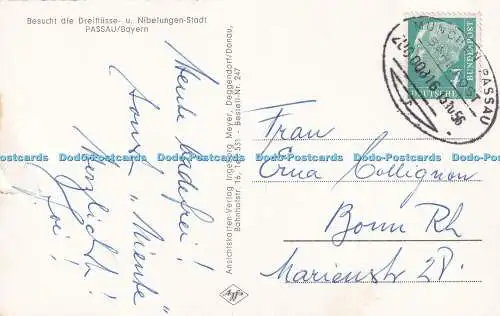 Besucht die Dreiflüsse- u. Nibelungen-Stadt
PASSAU/Bayern
Heute badefrei!
sonst "Niente"
Herzlichst!
Ansichtskarten-Verlag Ingeborg Meyer, Deggendorf/Donau,
Bahnhofstr. 16, Tel. 531 - Bestell-Nr. 247
Agfa
MÜNCHEN-PASSAU
BAHNPOST
DEUTSCHE BUNDESPOST
Frau
Erna Collignon
Bonn Rh
Marienstr 28.
Dodo-Postcards Dodo-Postcards Dodo-Postcards Dodo-Postcards Dodo-Postcards Dodo-Postcards